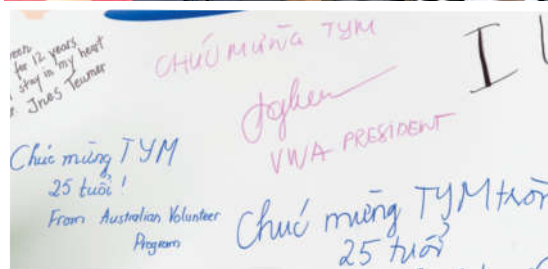 for 12 years
stay in my heart
CHÚC MỪNG TYM
VWA PRESIDENT
Chúc mừng TYM
25 tuổi !
From Australian Volunteer
Program
Chúc mừng TYM tròn
25 tuổi